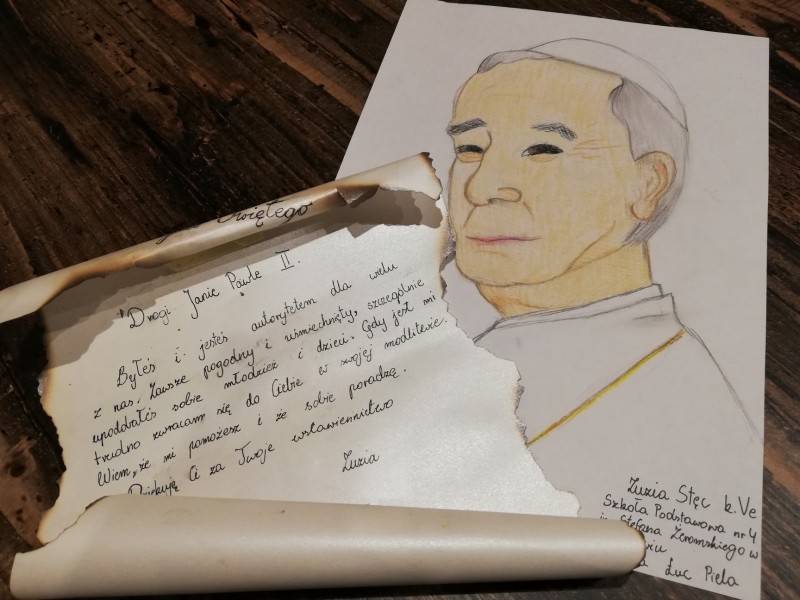 Świętego
Drogi Janie Pawle II.
Byłeś i jesteś autorytetem dla wielu
z nas. Zawsze pogodny i uśmiechnięty, szczególnie
upodobałeś sobie młodzież i dzieci. Gdy jest mi
trudno zwracam się do Ciebie w swojej modlitwie.
Wiem, że mi pomożesz i że sobie poradzę.
Dziękuję Ci za Twoje wstawiennictwo
Zuzia
Zuzia Stęc k. Ve
Szkoła Podstawowa nr 4
im. Stefana Żeromskiego w
Łuc Piela